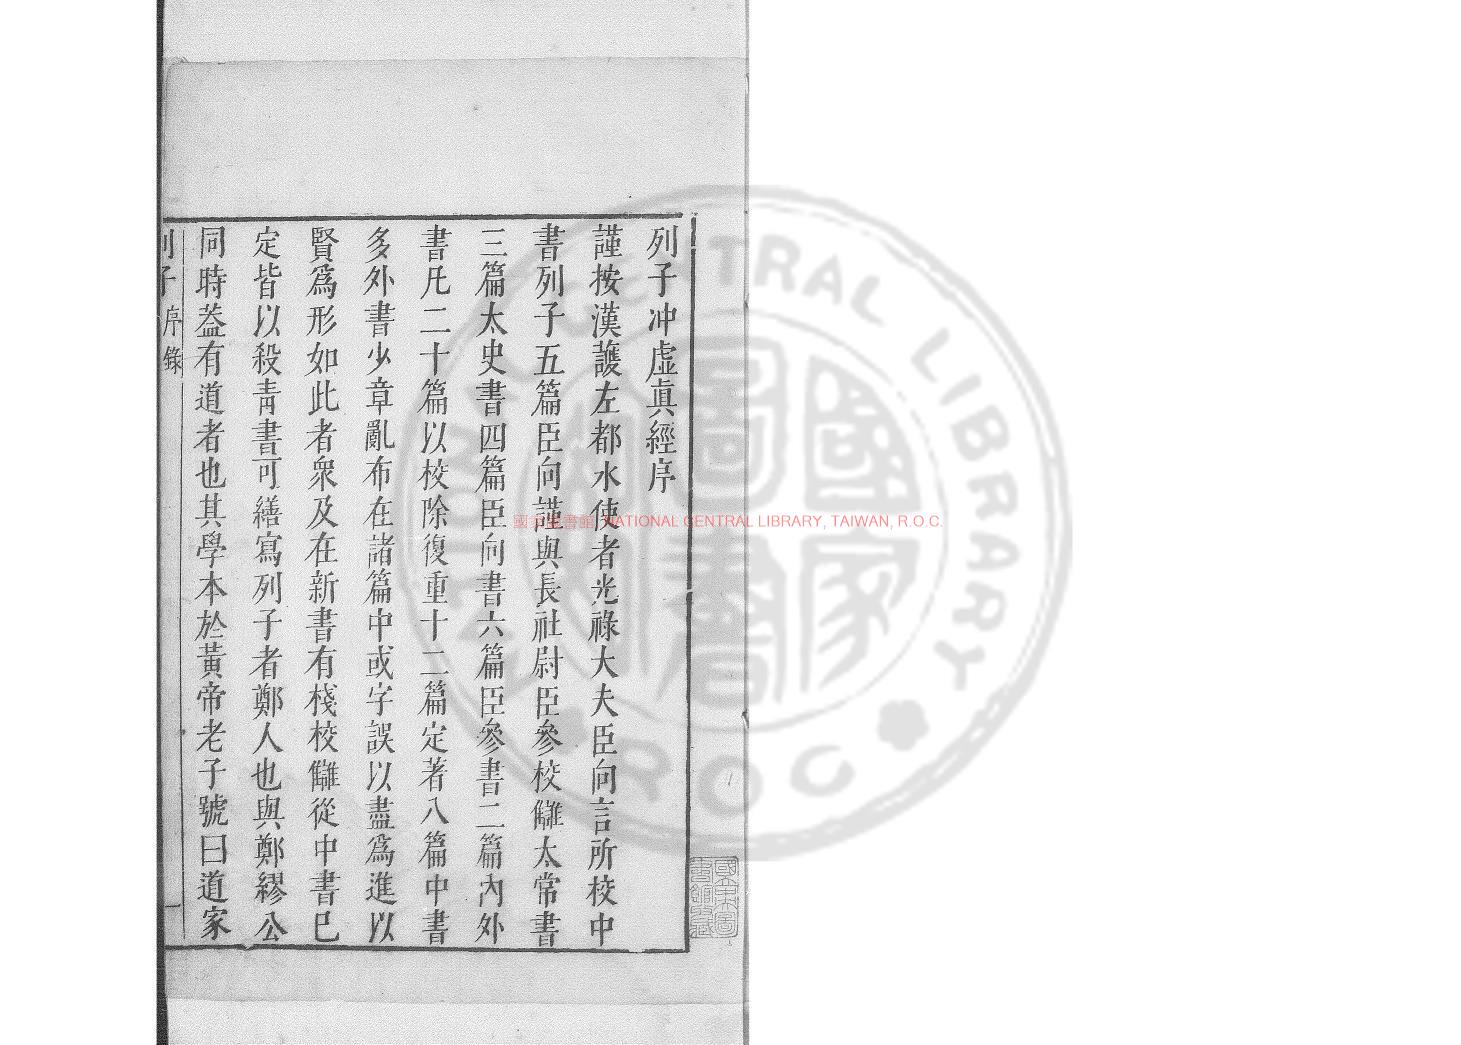 列子冲虛眞經序
謹按漢護左都水使者光祿大夫臣向言所校中
書列子五篇臣向謹與長社尉臣參校讎太常書
三篇太史書四篇臣向書六篇臣參書二篇內外
書凡二十篇以校除復重十二篇定著八篇中書
多外書少章亂布在諸篇中或字誤以盡爲進以
賢爲形如此者衆及在新書有棧校讎從中書巳
定皆以殺靑書可繕寫列子者鄭人也與鄭繆公
同時葢有道者也其學本於黃帝老子號曰道家
列子序錄
一
國家圖書館, NATIONAL CENTRAL LIBRARY, TAIWAN, R.O.C.
NATIONAL CENTRAL LIBRARY
ROC
國家圖書